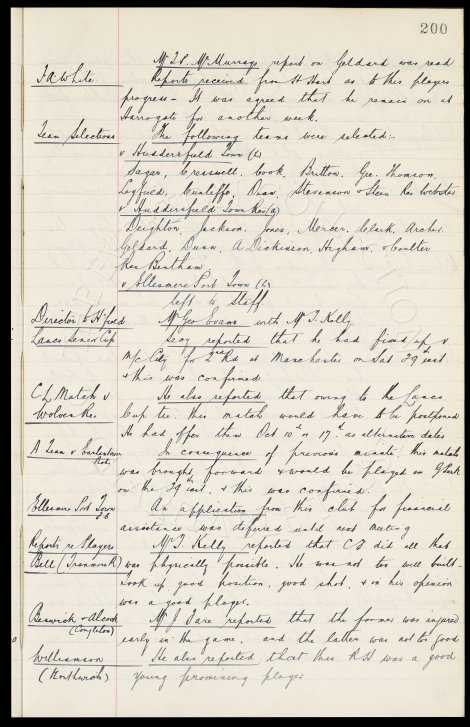 200
Mr T.P. McMurray's report on Geldard was read
J A White Reports received from H Hart as to this players
progress – It was agreed that he remain on at
Harrogate for another week.
Team Selections The following teams were selected:-
v Huddersfield Town (L)
Sagar, Cresswell, Cook, Britton, Gee, Thomson,
Leyfield, Cunliffe, Dean, Stevenson & Stein Res Webster
v Huddersfield Town Res (a)
Deighton, Jackson, Jones, Mercer, Clark, Archer
Geldard, Dunn, A Dickinson, Higham, & Coulter
Res Bentham
v Ellesmere Port Town (L)
left to Staff
Director to H'field Mr Geo Evans with Mr T. Kelly.
Lancs Senior Cup Secy reported that he had fixed up v
M/c City for 2nd Rd at Manchester on Sat 29th inst
& this was confirmed
C L Match v He also reported that owing to the Lancs
Wolves Res. Cup tie, this match would have to be postponed
He had offer them Oct 10th or 17th as alternative dates
A Team v Earlestown In consequence of previous minute this match
was brought forward & would be played on G'Park
on the 29th inst. & this was confirmed.
Ellesmere Port Town An application from this club for financial
assistance was deferred until next meeting
Reports re Players Mr T. Kelly reported that CB did all that
Bell (Tranmere R) was physically possible. He was not too well built-
took up good position, good shot, & in his opinion
was a good player.
Beswick & Alcock Mr J Sare reported that the former was injured
(Congleton) early in the game, and the latter was not to good
Williamson He also reported that this RH was a good
(Northwich) young promising player